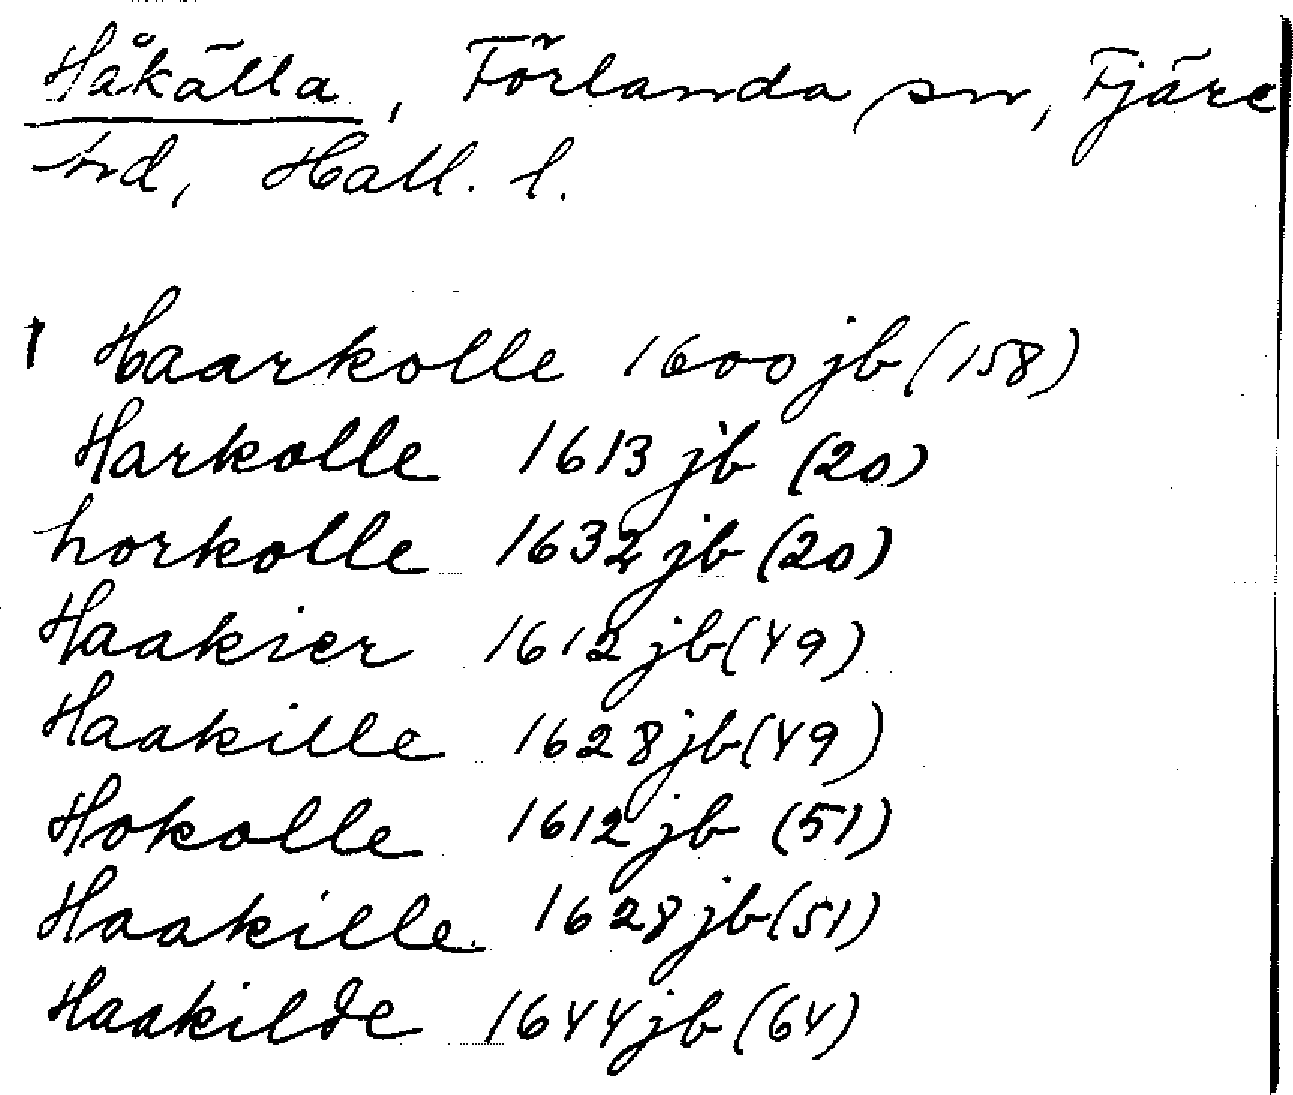 Håkälla, Förlanda sn, Fjäre
hd, Hall. l.
1 Haarkolle 1600 jb (158)
Harkolle 1613 jb (20)
horkolle 1632 jb (20)
Haakier 1612 jb (49)
Haakille 1628 jb (49)
Hokolle 1612 jb (51)
Haakille 1628 jb (51)
Haakilde 1644 jb (64)